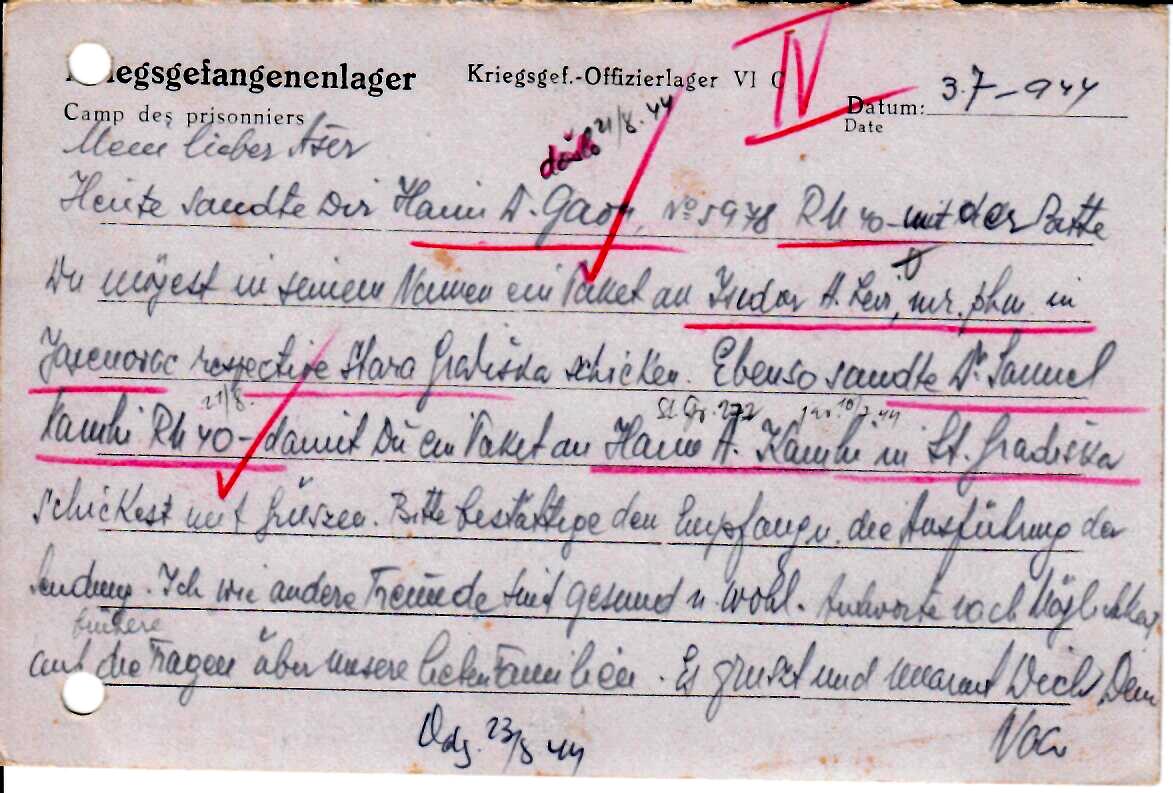 Kriegsgefangenenlager Kriegsgef.-Offizierlager VI C IV Datum: 3.7-944
Camp des prisonniers Date
došlo 21/8.44
Mein lieber Ašer
Heute sandte Dir Haim D. Gaon, No 5978 RM 40- mit der Bitte
Du mögest in seinem Namen ein Paket an Isidor A. Levi, mr. phm in
Jasenovac respective Stara Gradiška schicken. Ebenso sandte Dr. Samuel
21/8. St. Gr. 272 10/7.44
Kamhi RM 40- damit Du ein Paket an Haim A. Kamhi in St. Gradiška
schickest mit Grüszen. Bitte bestättige den Empfang u. die Ausführung der
Sendung. Ich wie andere Freunde sind gesund u. wohl. Antworte noch Möglichkeit
auf die frühere Fragen über unsere lieben Familien. Es grüszt und umarmt Dich Dein
Odg. 23/8 44